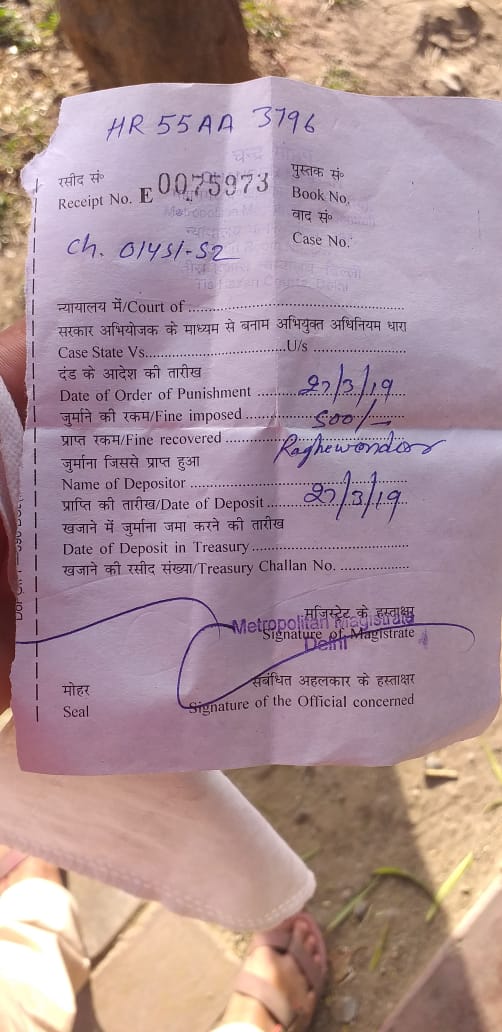 HR 55AA 3796
रसीद सं०
Receipt No. E 0075973
पुस्तक सं०
Book No.
वाद सं०
Case No.
Ch. 01451-52
न्यायालय में/Court of
सरकार अभियोजक के माध्यम से बनाम अभियुक्त अधिनियम धारा
Case State Vs. U/s
दंड के आदेश की तारीख
Date of Order of Punishment 27/3/19
जुर्माने की रकम/Fine imposed 500/-
प्राप्त रकम/Fine recovered
जुर्माना जिससे प्राप्त हुआ
Name of Depositor
प्राप्ति की तारीख/Date of Deposit 27/3/19
खजाने में जुर्माना जमा करने की तारीख
Date of Deposit in Treasury
खजाने की रसीद संख्या/Treasury Challan No.
मजिस्ट्रेट के हस्ताक्षर
Metropolitan Magistrate
Signature of Magistrate
Delhi
संबंधित अहलकार के हस्ताक्षर
मोहर
Seal
Signature of the Official concerned